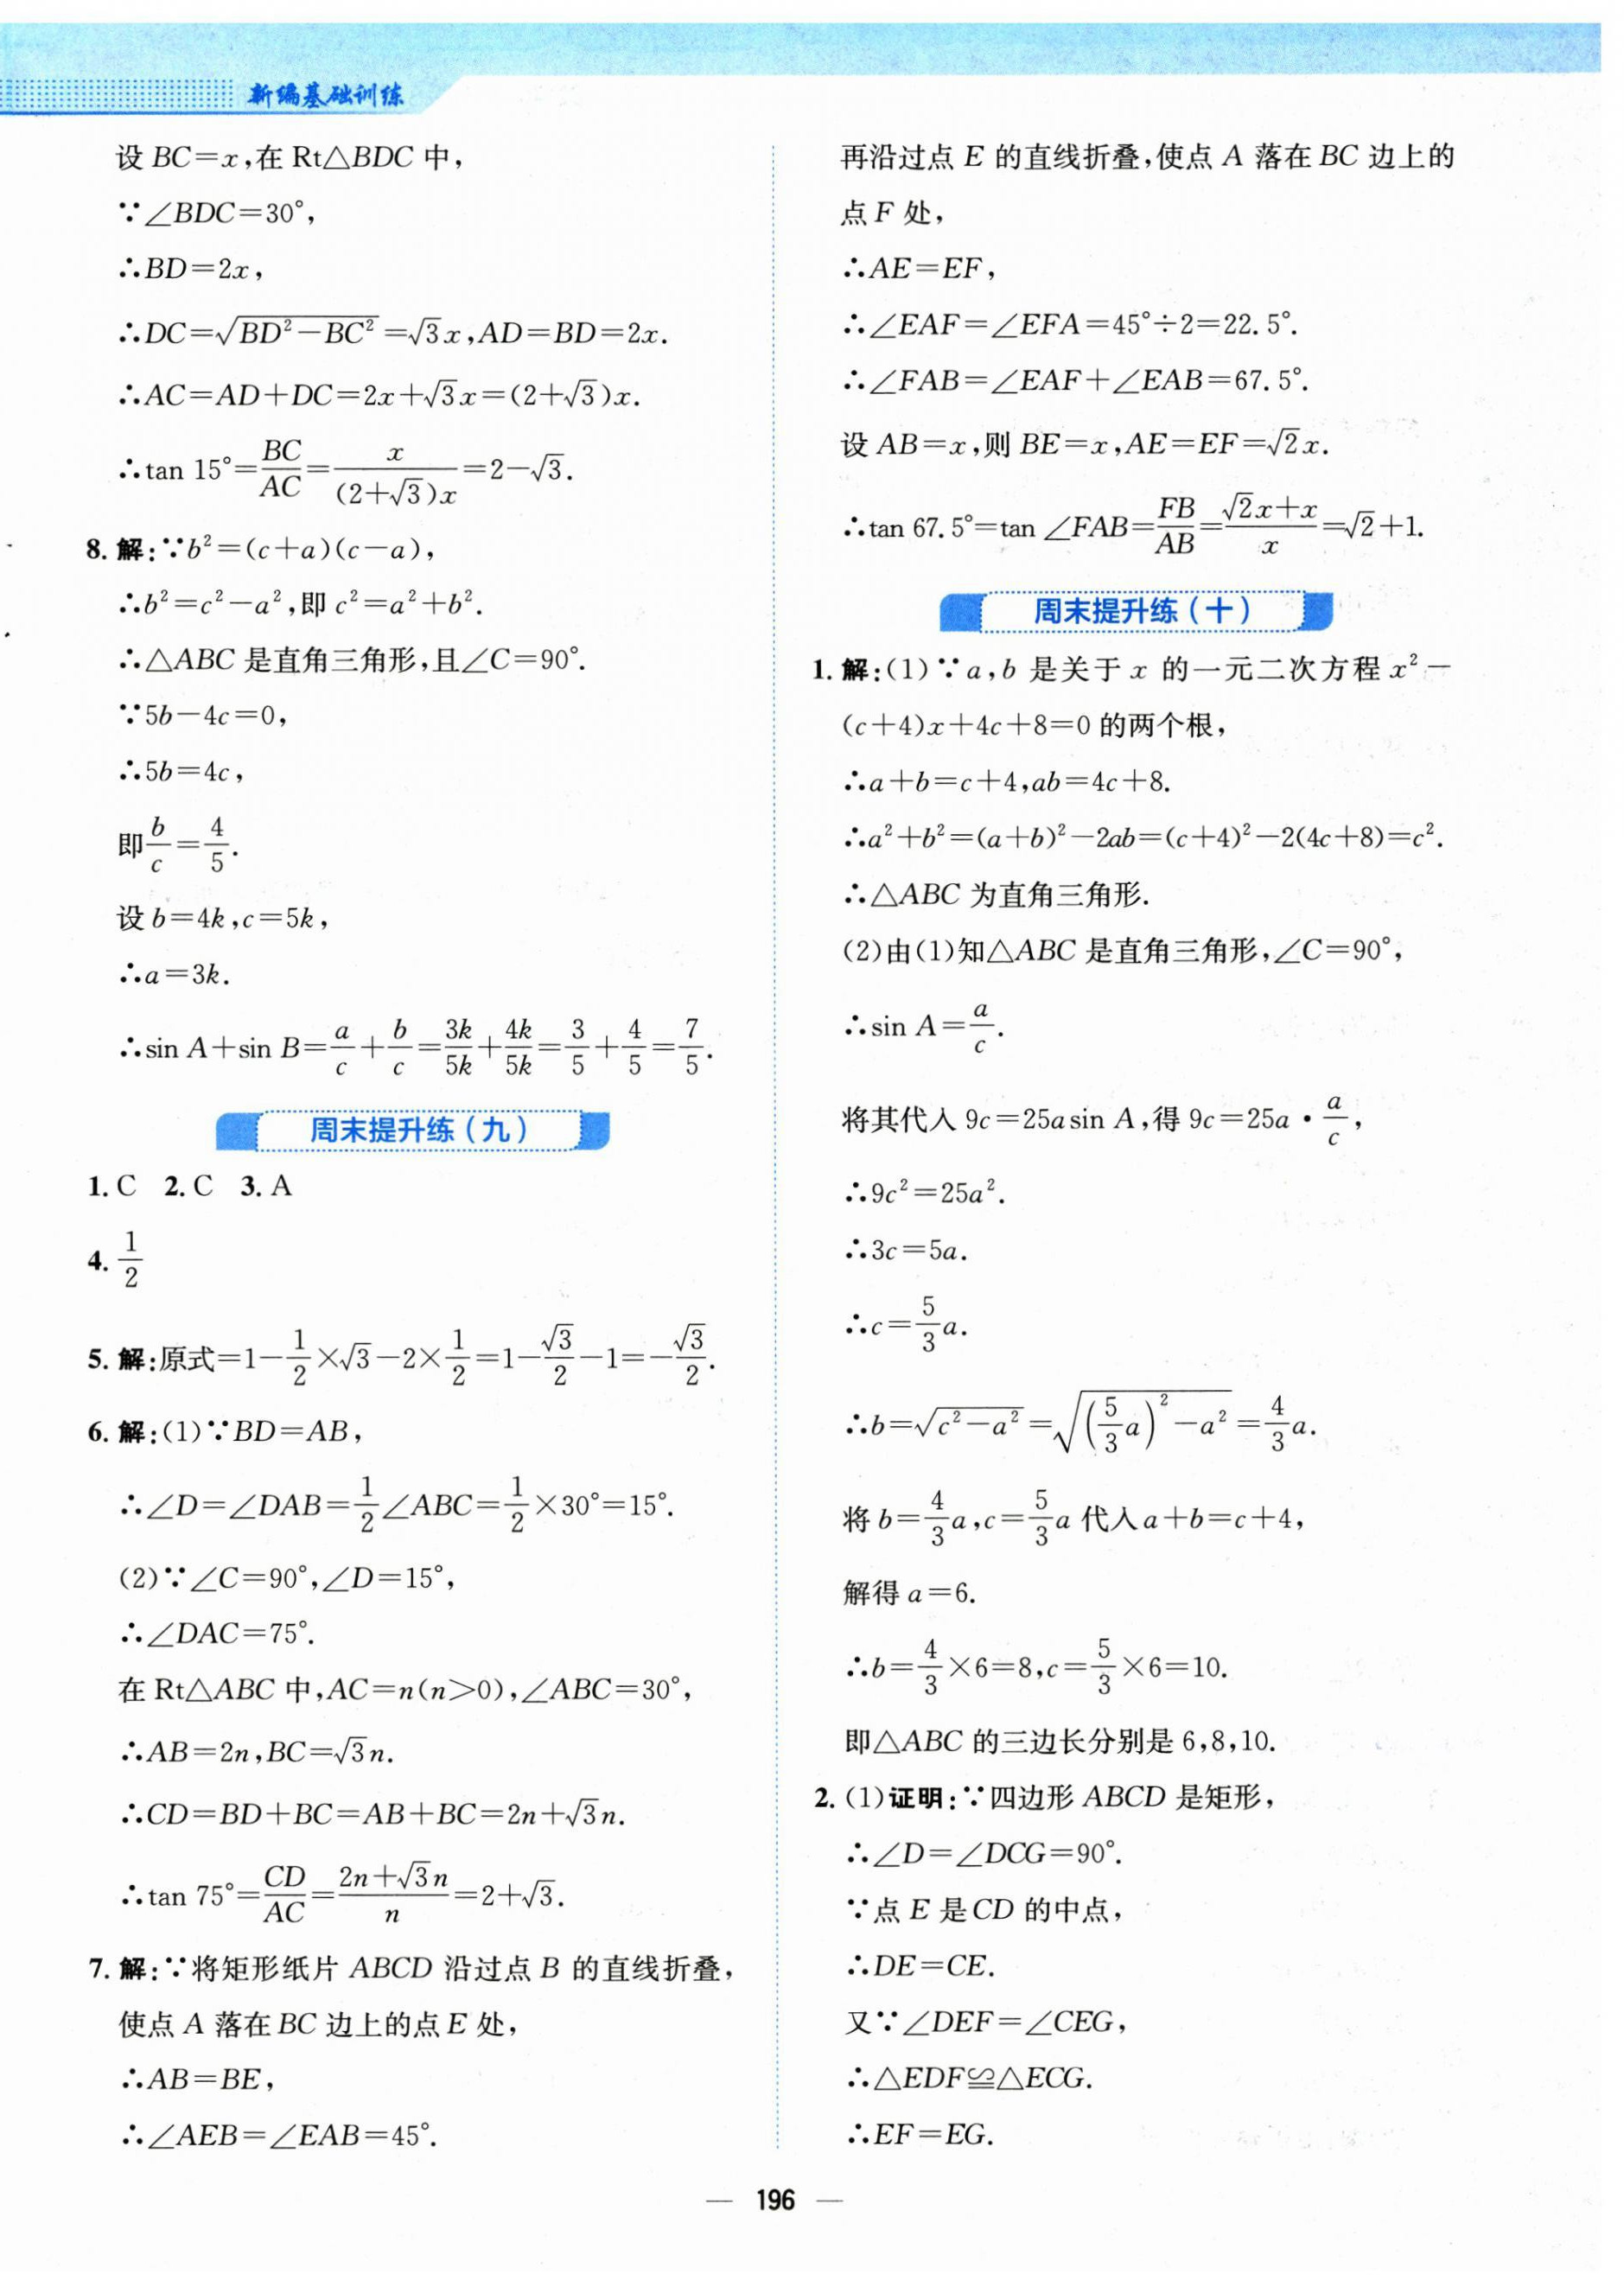 新编基础训练
设 BC=x,在 Rt△BDC 中,
∵∠BDC=30°,
∴BD=2x,
∴DC=√(BD²-BC²)=√3x,AD=BD=2x.
∴AC=AD+DC=2x+√3x=(2+√3)x.
∴tan 15°=BC/AC=x/((2+√3)x)=2-√3.
8. 解:∵b²=(c+a)(c-a),
∴b²=c²-a²,即 c²=a²+b².
∴△ABC 是直角三角形,且∠C=90°.
∵5b-4c=0,
∴5b=4c,
即b/c=4/5.
设 b=4k,c=5k,
∴a=3k.
∴sin A+sin B=a/c+b/c=3k/5k+4k/5k=3/5+4/5=7/5.
周末提升练(九)
1. C 2. C 3. A
4. 1/2
5. 解:原式=1-1/2×√3-2×1/2=1-√3/2-1=-√3/2.
6. 解:(1)∵BD=AB,
∴∠D=∠DAB=1/2∠ABC=1/2×30°=15°.
(2)∵∠C=90°,∠D=15°,
∴∠DAC=75°.
在 Rt△ABC 中,AC=n(n>0),∠ABC=30°,
∴AB=2n,BC=√3n.
∴CD=BD+BC=AB+BC=2n+√3n.
∴tan 75°=CD/AC=(2n+√3n)/n=2+√3.
7. 解:∵将矩形纸片 ABCD 沿过点 B 的直线折叠,
使点 A 落在 BC 边上的点 E 处,
∴AB=BE,
∴∠AEB=∠EAB=45°.
再沿过点 E 的直线折叠,使点 A 落在 BC 边上的
点 F 处,
∴AE=EF,
∴∠EAF=∠EFA=45°÷2=22.5°.
∴∠FAB=∠EAF+∠EAB=67.5°.
设 AB=x,则 BE=x,AE=EF=√2x.
∴tan 67.5°=tan ∠FAB=FB/AB=(√2x+x)/x=√2+1.
周末提升练(十)
1. 解:(1)∵a,b 是关于 x 的一元二次方程 x²-
(c+4)x+4c+8=0 的两个根,
∴a+b=c+4,ab=4c+8.
∴a²+b²=(a+b)²-2ab=(c+4)²-2(4c+8)=c².
∴△ABC 为直角三角形.
(2)由(1)知△ABC 是直角三角形,∠C=90°,
∴sin A=a/c.
将其代入 9c=25asin A,得 9c=25a·a/c,
∴9c²=25a².
∴3c=5a.
∴c=5/3a.
∴b=√(c²-a²)=√((5/3a)²-a²)=4/3a.
将 b=4/3a,c=5/3a 代入 a+b=c+4,
解得 a=6.
∴b=4/3×6=8,c=5/3×6=10.
即△ABC 的三边长分别是 6,8,10.
2. (1)证明:∵四边形 ABCD 是矩形,
∴∠D=∠DCG=90°.
∵点 E 是 CD 的中点,
∴DE=CE.
又∵∠DEF=∠CEG,
∴△EDF≌△ECG.
∴EF=EG.
— 196 —